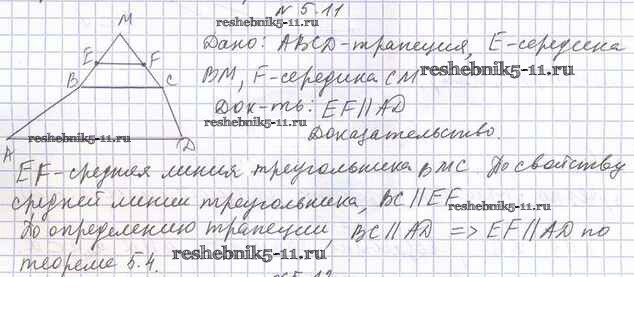 N 5.11
reshebnik5-11.ru
M
Дано: ABCD-трапеция, E-середина
E F
BM, F-середина CM reshebnik5-11.ru
B C
Док-ть: EF||AD
reshebnik5-11.ru
Доказательство.
reshebnik5-11.ru
A D
EF-средняя линия треугольника BMC. По свойству
средней линии треугольника, BC||EF.
reshebnik5-11.ru
По определению трапеции, BC||AD => EF||AD по
теореме 5.4. reshebnik5-11.ru